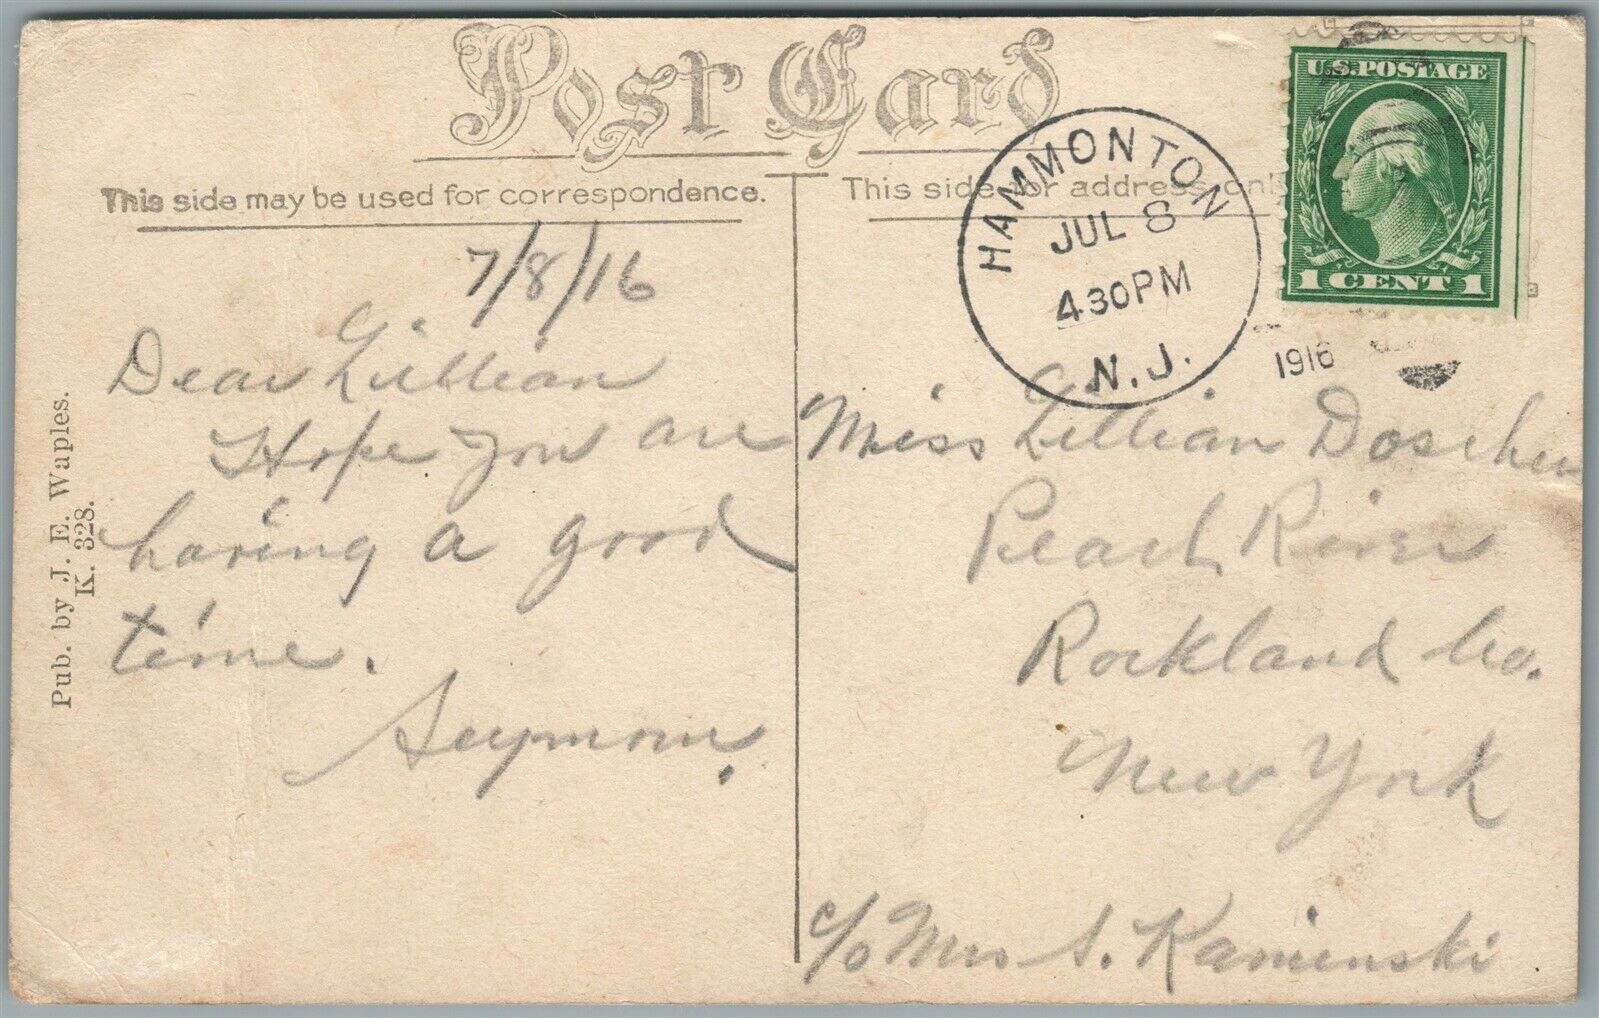 Post Card
This side may be used for correspondence.
This side for address only
U.S. POSTAGE
1 CENT 1
HAMMONTON
JUL 8
430PM
N.J.
1916
7/8/16
Dear Lillian
Hope you are
having a good
time.
Seymour.
Miss Lillian Doscher
Pearl River
Rockland Co.
New York
c/o Mrs S. Kaminski
Pub. by J. E. Waples.
K. 328.